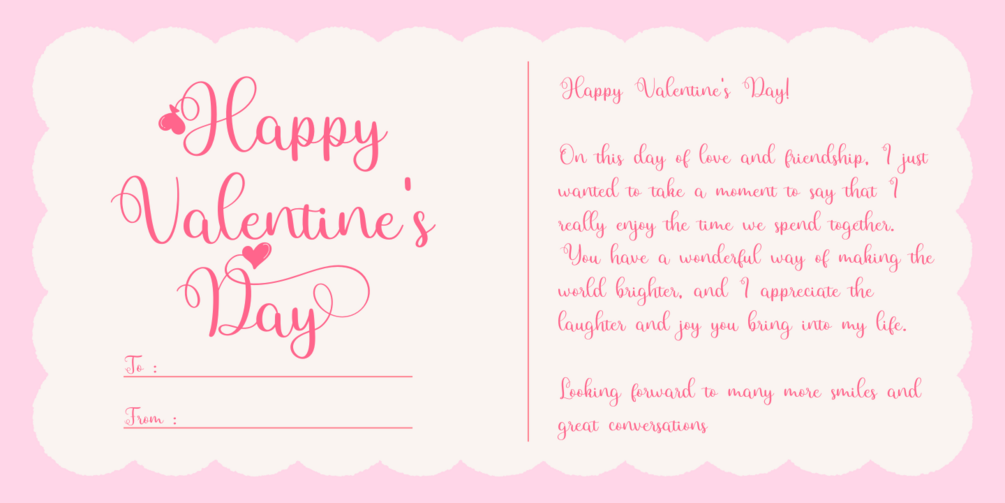 Happy
Valentine's
Day
To :
From :
Happy Valentine's Day!
On this day of love and friendship, I just
wanted to take a moment to say that I
really enjoy the time we spend together.
You have a wonderful way of making the
world brighter, and I appreciate the
laughter and joy you bring into my life.
Looking forward to many more smiles and
great conversations